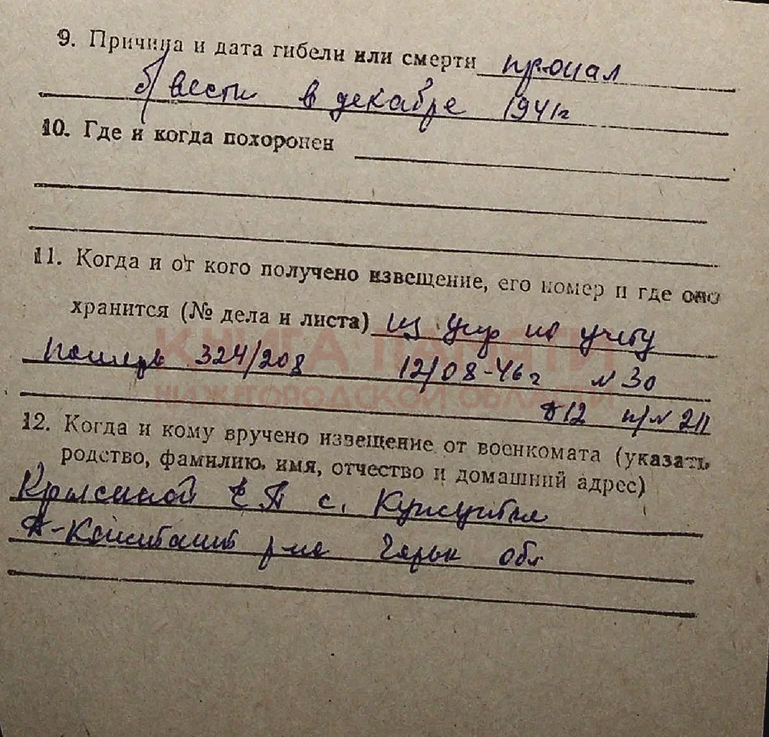 9. Причина и дата гибели или смерти пропал
б/вести в декабре 1941г
10. Где и когда похоронен
11. Когда и от кого получено извещение, его номер и где оно
хранится (№ дела и листа) из упр по учету
потерь 324/208 12/08-46г №30
Д12 п/№ 211
КНИГА ПАМЯТИ
НИЖЕГОРОДСКОЙ ОБЛАСТИ
12. Когда и кому вручено извещение от военкомата (указать
родство, фамилию, имя, отчество и домашний адрес)
с.
Д-Константин р-на Горьк обл